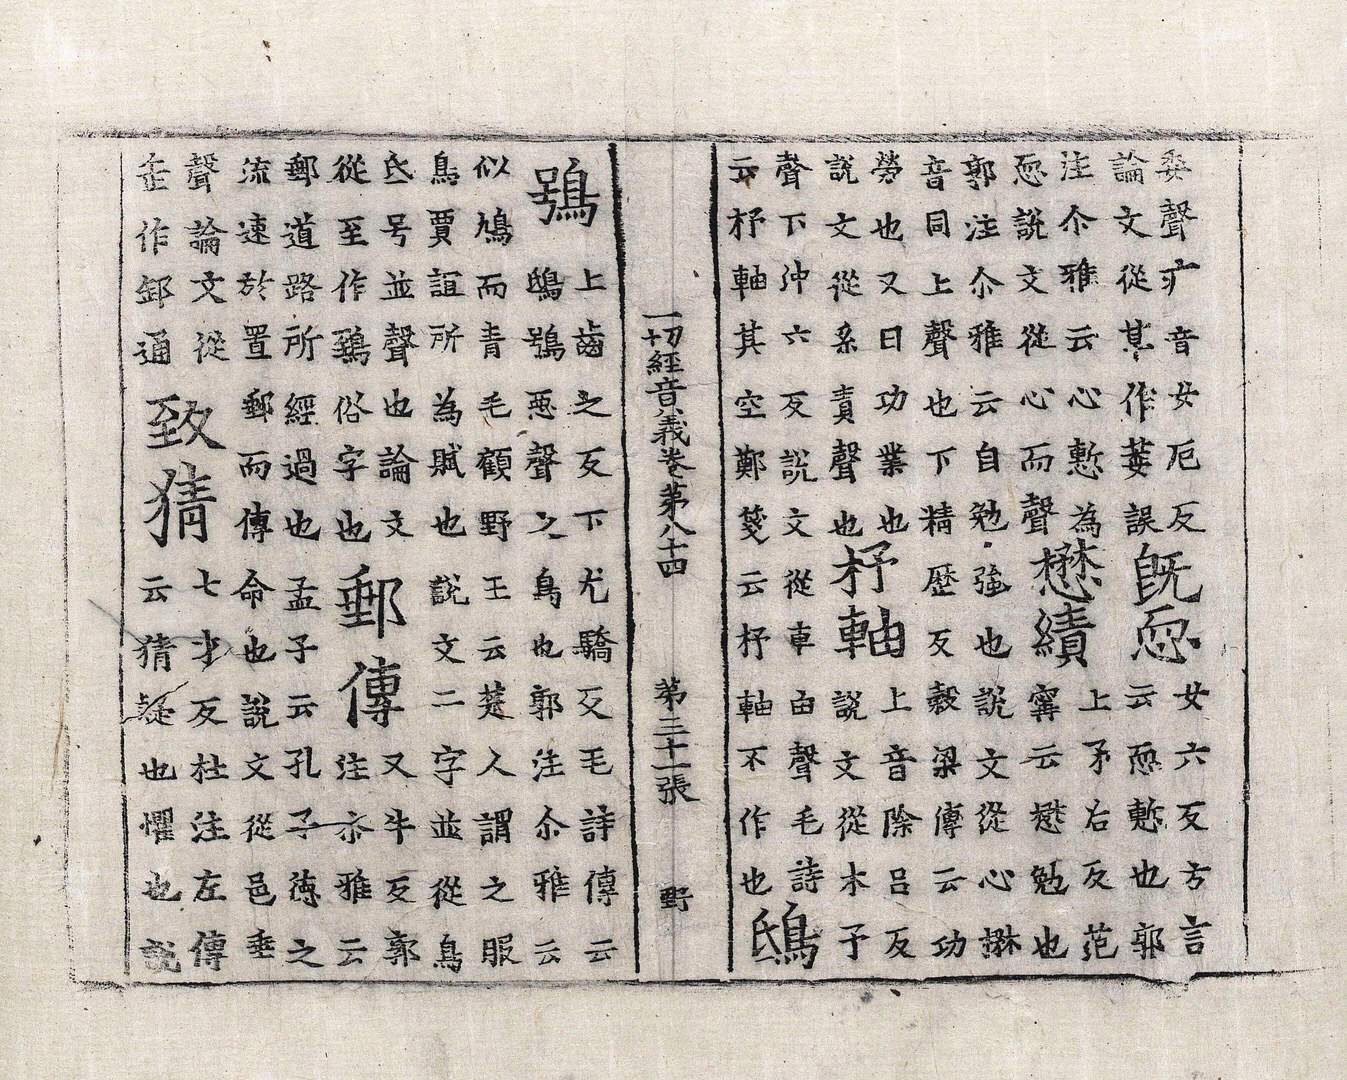 委聲疒音女厄反
論文從某作萎誤
既恧
女六反方言
云恧慙也郭
注尒雅云心慙為
恧說文從心而聲
懋績
上矛右反范
甯云懋勉也
郭注尒雅云自勉強也說文從心楙
音同上聲也下精歷反穀梁傳云功
勞也又曰功業也
說文從系責聲也
杼軸
上音除呂反
說文從木予
聲下沖六反說文從車由聲毛詩
云杼軸其空鄭箋云杼軸不作也
鴟
一切經音義卷第八十四 第三十一張 野
鴞
上齒之反下尤驕反毛詩傳云
鴟鴞惡聲之鳥也郭注尒雅云
似鳩而青毛顧野王云楚人謂之服
鳥賈誼所為賦也說文二字並從鳥
氐号並聲也論文
從至作鵄俗字也
郵傳
又牛反郭
注尒雅云
郵道路所經過也孟子云孔子德之
流速於置郵而傳命也說文從邑垂
聲論文從
作卸通
致猜
七才反杜注左傳
云猜疑也懼也說